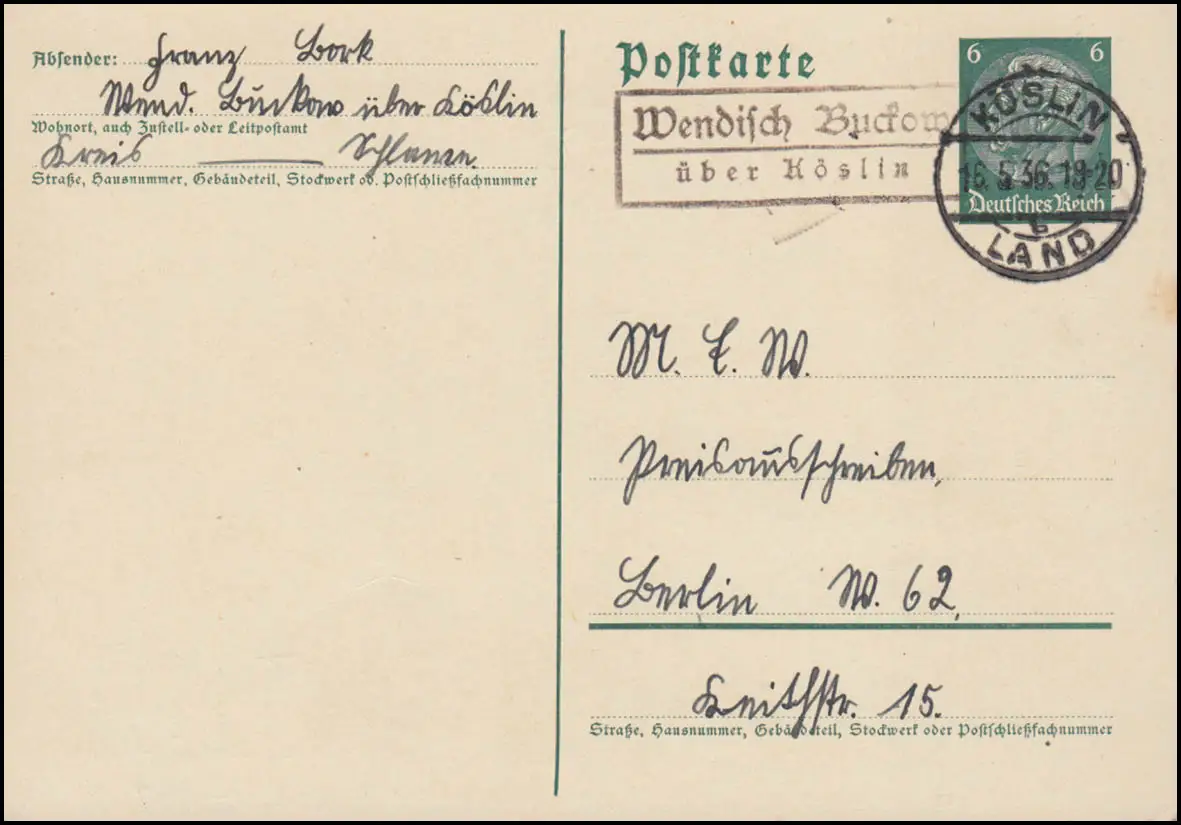 Absender: Franz Bork
Wend. Buckow über Köslin
Wohnort, auch Zustell- oder Leitpostamt
Kreis Schlawe
Straße, Hausnummer, Gebäudeteil, Stockwerk od. Postschließfachnummer
Postkarte
6 6
Deutsches Reich
Wendisch Buckow
über Köslin
KÖSLIN
16.5.36.19-20
b
LAND
M. E. W.
Preisausschreiben,
Berlin W. 62,
Keithstr. 15.
Straße, Hausnummer, Gebäudeteil, Stockwerk oder Postschließfachnummer